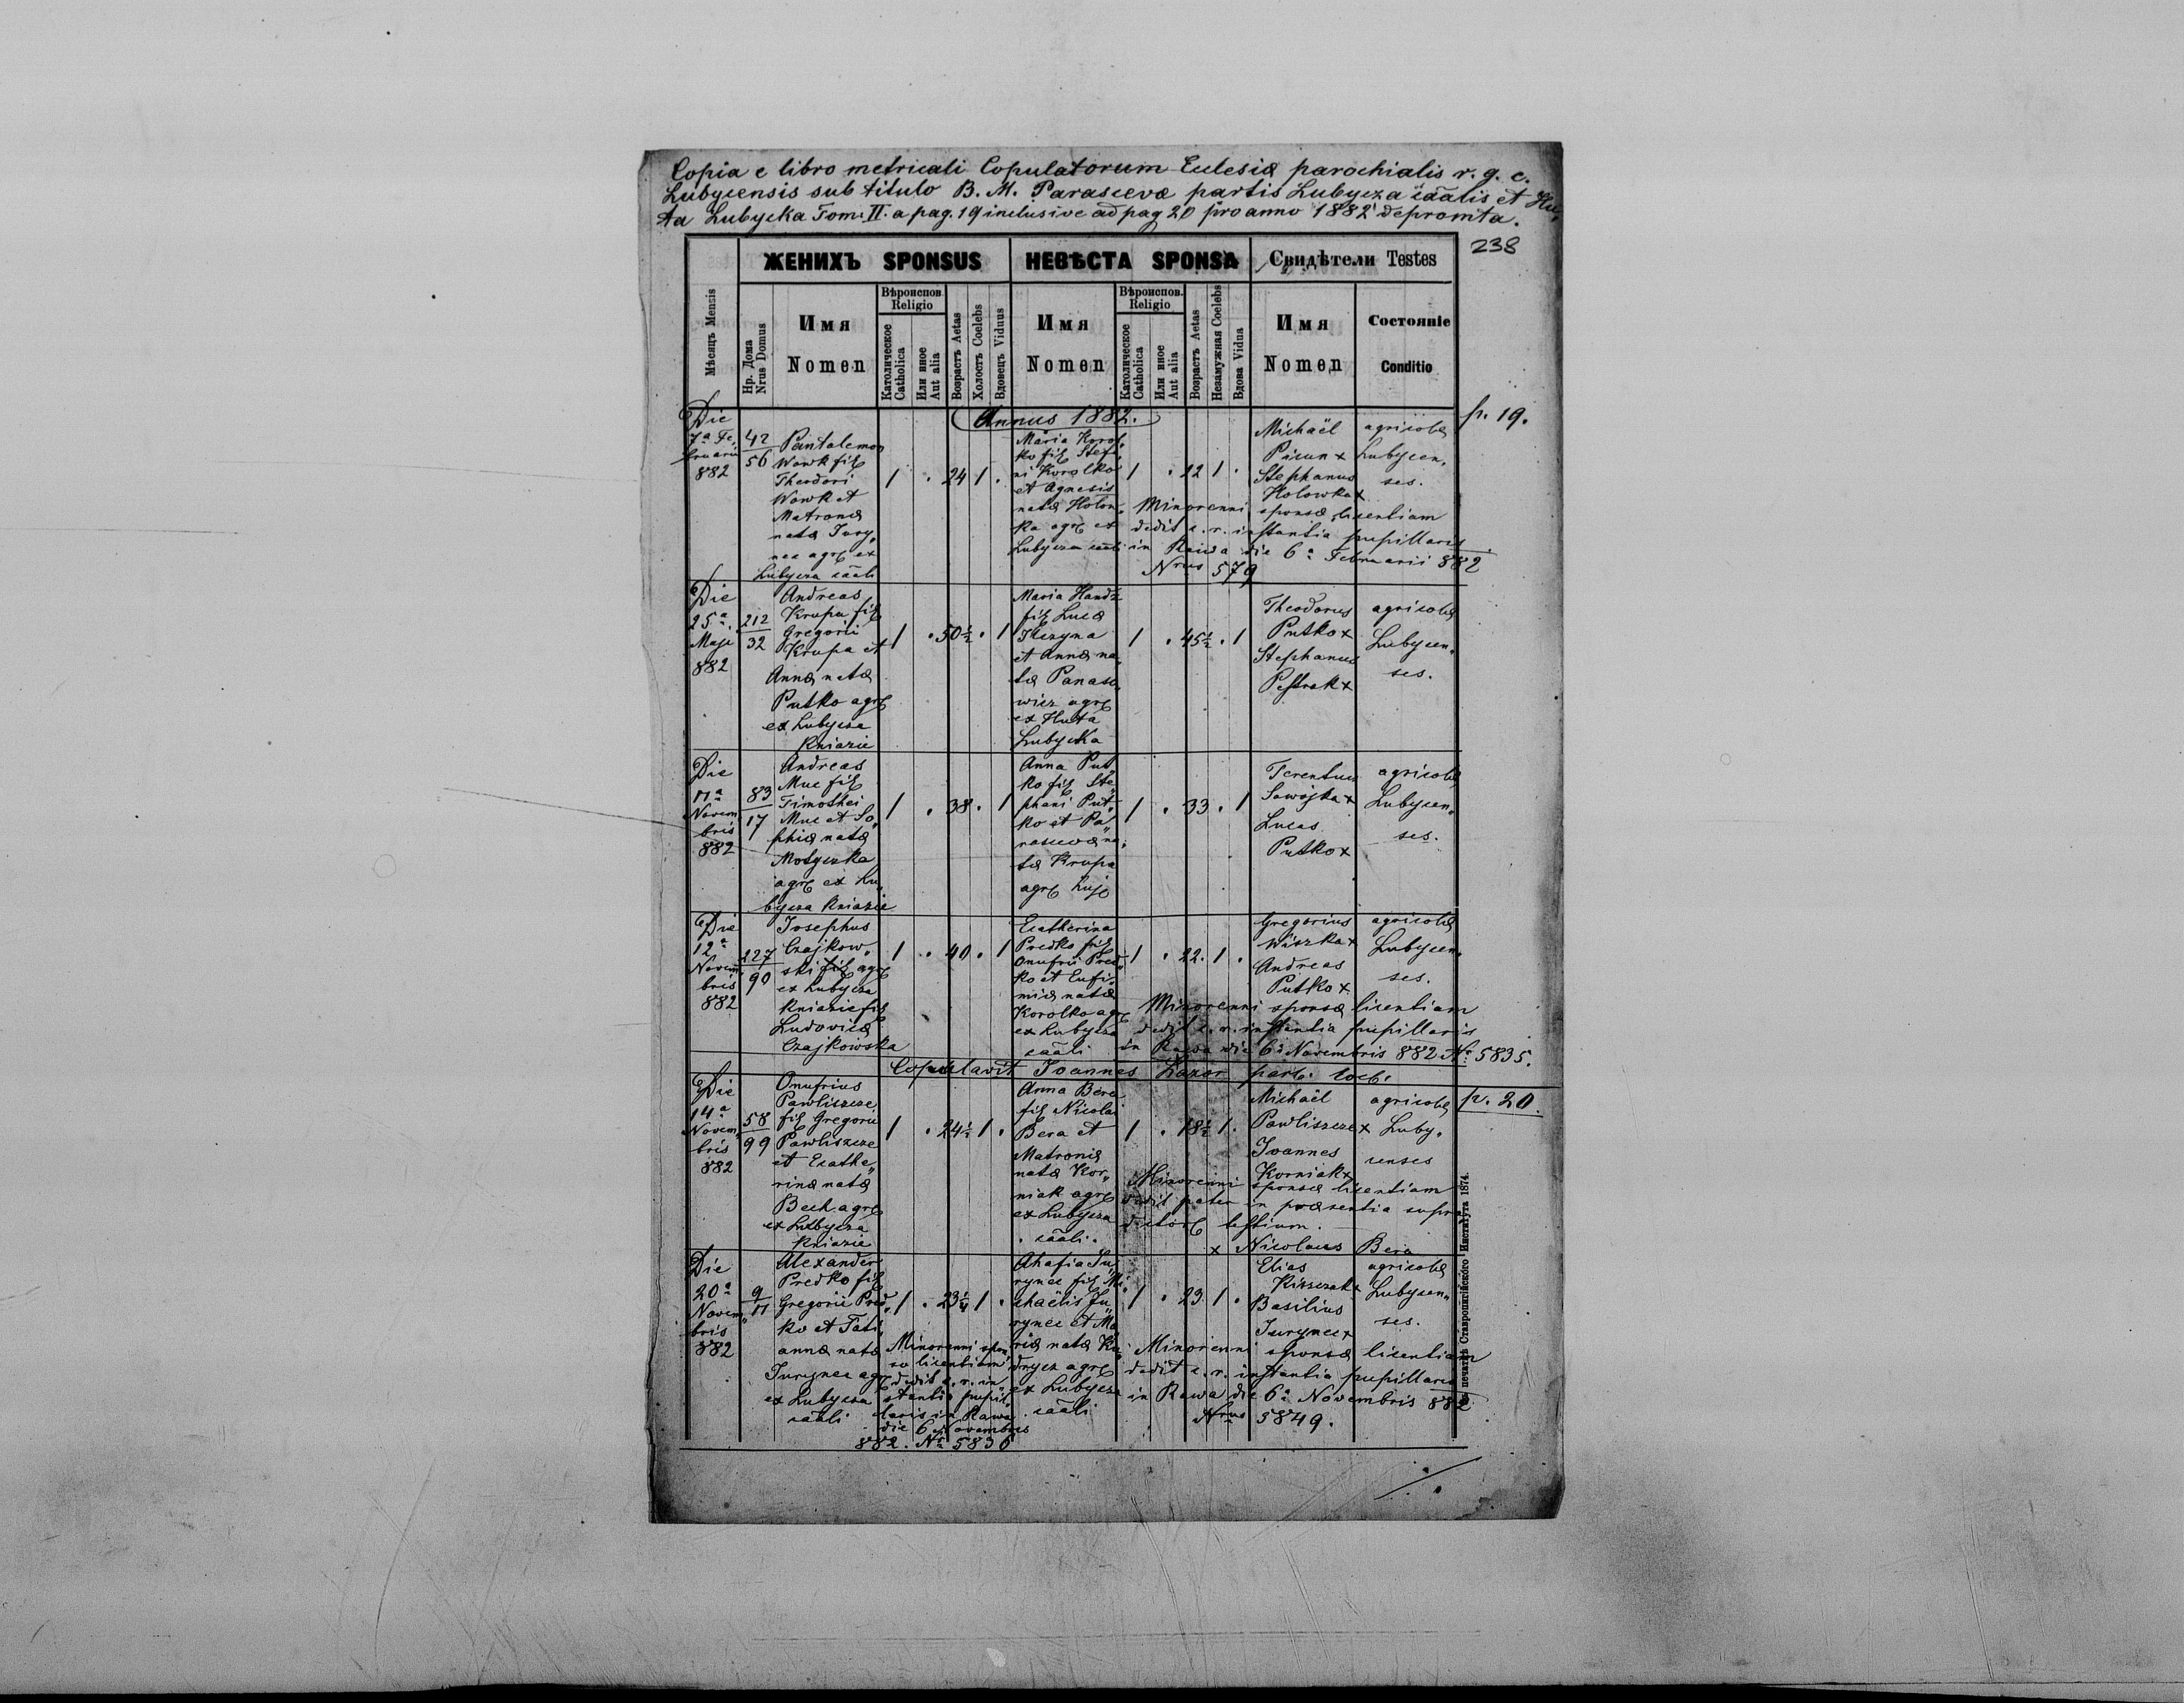 Copia e libro metricali Copulatorum Eclesiæ parochialis r. g. c.
Lubycensis sub titulo B. M. Parascevæ partis Lubycza cäälis et Hu„
ta Lubycka Tom. II. a pag. 19 inclusive ad pag 20 pro anno 1882 depromta.
238
ЖЕНИХЪ SPONSUS
НЕВѢСТА SPONSA
Свидѣтели Testes
Мѣсяцъ Mensis
Нр. Дома
Nrus Domus
Имя
Nomen
Вѣроиспов.
Religio
Католическое
Catholica
Или иное
Aut alia
Возрастъ Aetas
Холостъ Coelebs
Вдовецъ Viduus
Имя
Nomen
Вѣроиспов.
Religio
Католическое
Catholica
Или иное
Aut alia
Возрастъ Aetas
Незамужная Coelebs
Вдова Vidua
Имя
Nomen
Состояніе
Conditio
Annus 1882.
p. 19.
Die
7ª Fe„
bruarii
882
42
56
Pantalemon
Wowk fil
Theodori
Wowk et
Matronæ
natæ Jury„
nec agr ex
Lubycza cääli
1 . 24 1 .
Maria Korol„
ko fil Stefa„
ni Korolko
et Agnesis
natæ Holow„
ka agr ex
Lubycza cääli
1 . 22 1 .
Michaël
Stephanus
Holowka x
agricolæ
Lubycen„
ses.
Minorenni sponsæ licentiam
dedit c. r. instantia pupillaris
in Rawa die 6ª Februarii 882
Nrus 579
Die
25ª
Maji
882
212
32
Andreas
Krupa fil
Gregorii
Krupa et
Annæ natæ
Putko agr
ex Lubycza
Kniazie
1 . 50½ . 1
Maria Handz
fil Lucæ
et Annæ na„
tæ Panase„
wicz agr
ex Huta
Lubycka
1 . 45½ . 1
Theodorus
Putko x
Stephanus
Pestrak x
agricolæ
Lubycen„
ses.
Die
11ª
Novem„
bris
882
83
17
Andreas
Muc fil
Timothei
Muc et So„
phiæ natæ
Motyczka
agr ex Lu„
bycza Kniazie
1 . 38 . 1
Anna Put„
ko fil Ste„
phani Put„
ko et Pa„
rascevæ na„
tæ Krupa
agr
1 . 33 . 1
Terentius
Sawojka x
Lucas
Putko x
agricolæ
Lubycen„
ses.
Die
12ª
Novem„
bris
882
227
90
Josephus
Czajkow„
ski fil agr
ex Lubycza
Kniazie fil
Ludovicæ
Czajkowska
1 . 40 . 1
Ecatherina
Predko fil
Onufrii Pred„
ko et Eufi„
miæ natæ
Korolko agr
ex Lubycza
cääli
1 . 22 . 1 .
Gregorius
Wiszka x
Andreas
Putko x
agricolæ
Lubycen„
ses.
Minorenni sponsæ licentiam
dedit c. r. instantia pupillaris
in Rawa die 6ª Novembris 882 Nº 5835.
Copulavit Joannes Lazor par. loc.
p. 20.
Die
14ª
Novem„
bris
882
58
99
Onufrius
Pawliszcze
fil Gregorii
Pawliszcze
et Ecathe„
rinæ natæ
Bech agr
ex Lubycza
Kniazie
1 . 24½ 1 .
Anna Bera
fil Nicolai
Bera et
Matronis
natæ Kor„
niak agr
ex Lubycza
cääli.
1 . 18½ 1 .
Michaël
Pawliszcze x
Joannes
Korniak x
agricolæ
Luby„
censes
Minorenni sponsæ licentiam
dedit pater in præsentia supra
dictor testium.
x Nicolaus Bera
Die
20ª
Novem„
bris
882
9
11
Alexander
Predko fil
Gregorii Pred„
ko et Tati„
annæ natæ
Jurynec agr
ex Lubycza
cääli
1 . 23¼ 1 .
Minorenni spon„
so licentiam
dedit c. r. in„
stantia pupil„
laris in Rawa
die 6 Novembris
882. Nº 5836
Ahafia Ju„
rynec fil Mi„
chaëlis Ju„
rynec et Ma„
riæ natæ Ku„
drycz agr
ex Lubycza
cääli
1 . 23 . 1 .
Elias
Kiszczak x
Basilius
Jurynec x
agricolæ
Lubycen„
ses.
Minorenni sponsæ licentiam
dedit c. r. instantia pupillaris
in Rawa die 6ª Novembris 882
Nrus 5849.
печатнѣ Ставропигійского Института 1874.